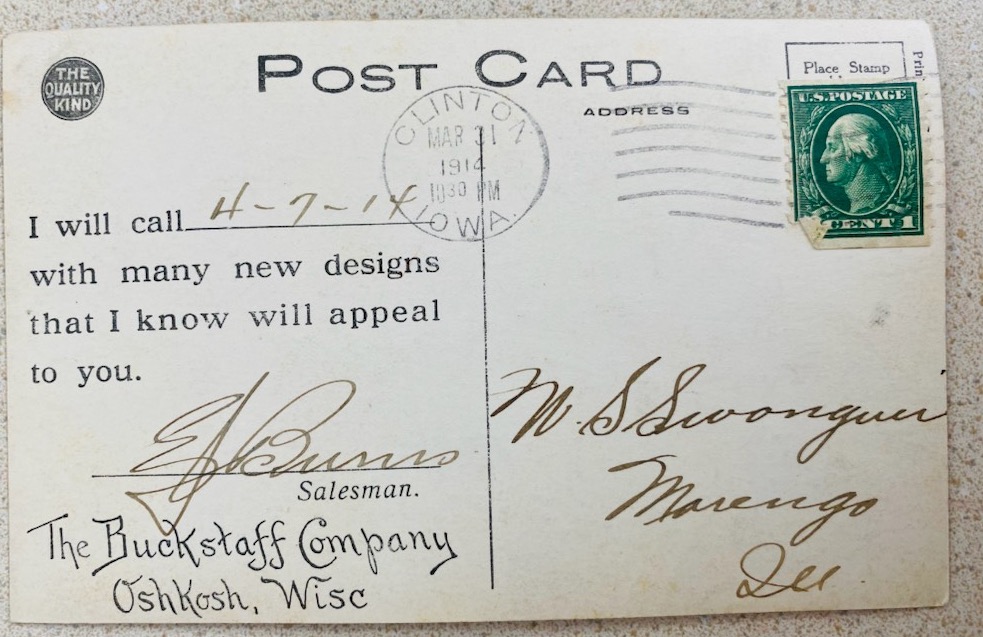 THE
QUALITY
KIND
POST CARD
ADDRESS
Place Stamp
Prin
U.S. POSTAGE
CENT 1
CLINTON
MAR 31
1914
1030 PM
IOWA.
I will call 4-7-14
with many new designs
that I know will appeal
to you.
E J Burns
Salesman.
The Buckstaff Company
Oshkosh, Wisc
W. S
Marengo
Ill.